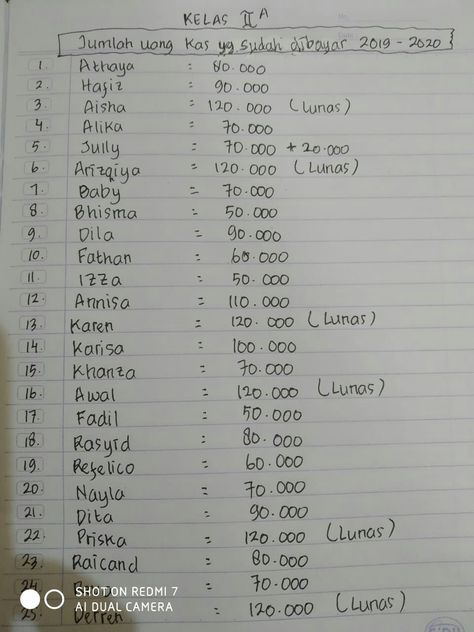 KELAS II A
Jumlah uang Kas yg sudah dibayar 2019 - 2020
1. Athaya : 80.000
2. Hafiz : 90.000
3. Aisha = 120.000 (Lunas)
4. Alika : 70.000
5. Jully = 70.000 + 20.000
6. Arizqiya = 120.000 (Lunas)
7. Baby = 70.000
8. Bhisma = 50.000
9. Dila = 90.000
10. Fathan = 60.000
11. IZZa = 50.000
12. Annisa = 110.000
13. Karen = 120.000 (Lunas)
14. Karisa : 100.000
15. Khanza : 70.000
16. Awal = 120.000 (Lunas)
17. Fadil = 50.000
18. Rasyid = 80.000
19. Refelico = 60.000
20. Nayla = 70.000
21. Dita : 90.000
22. Priska = 120.000 (Lunas)
23. Raicand = 80.000
24. = 70.000
25. Derren = 120.000 (Lunas)
SHOT ON REDMI 7
AI DUAL CAMERA